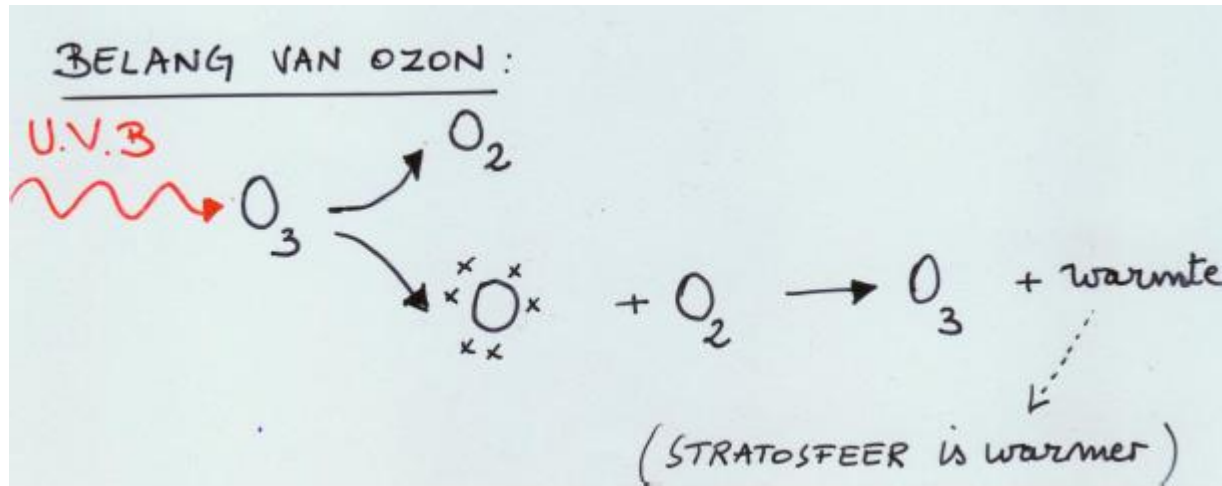 BELANG VAN OZON:
U.V.B
O₂
O₃
O + O₂ → O₃ + warmte
(STRATOSFEER is warmer)